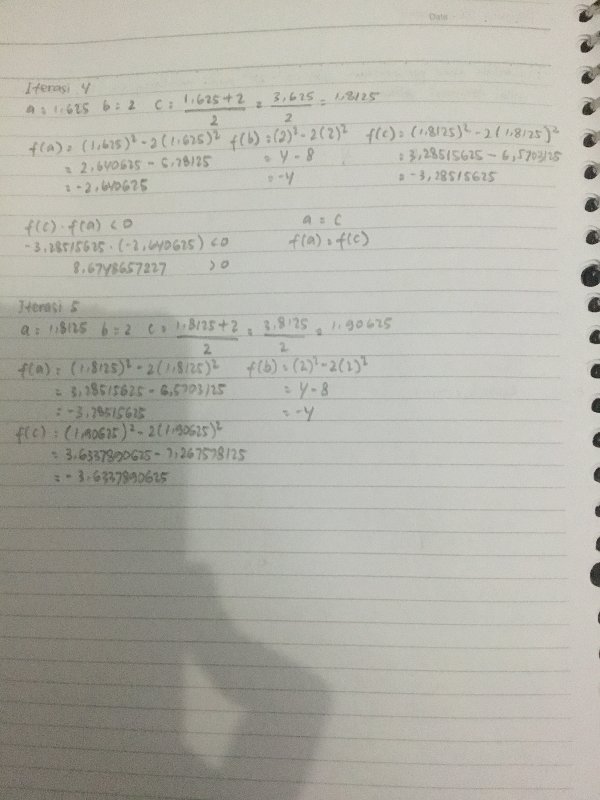 Date
Iterasi 4
a = 1,625 b = 2 c = (1,625 + 2)/2 = 3,625/2 = 1,8125
f(a) = (1,625)² - 2(1,625)² f(b) = (2)² - 2(2)² f(c) = (1,8125)² - 2(1,8125)²
= 2,640625 - 5,28125 = 4 - 8 = 3,28515625 - 6,5703125
= -2,640625 = -4 = -3,28515625
f(c) · f(a) < 0 a = c
-3,28515625 · (-2,640625) < 0 f(a) = f(c)
8,6748657227 > 0
Iterasi 5
a = 1,8125 b = 2 c = (1,8125 + 2)/2 = 3,8125/2 = 1,90625
f(a) = (1,8125)² - 2(1,8125)² f(b) = (2)² - 2(2)²
= 3,28515625 - 6,5703125 = 4 - 8
= -3,28515625 = -4
f(c) = (1,90625)² - 2(1,90625)²
= 3,6337890625 - 7,267578125
= -3,6337890625